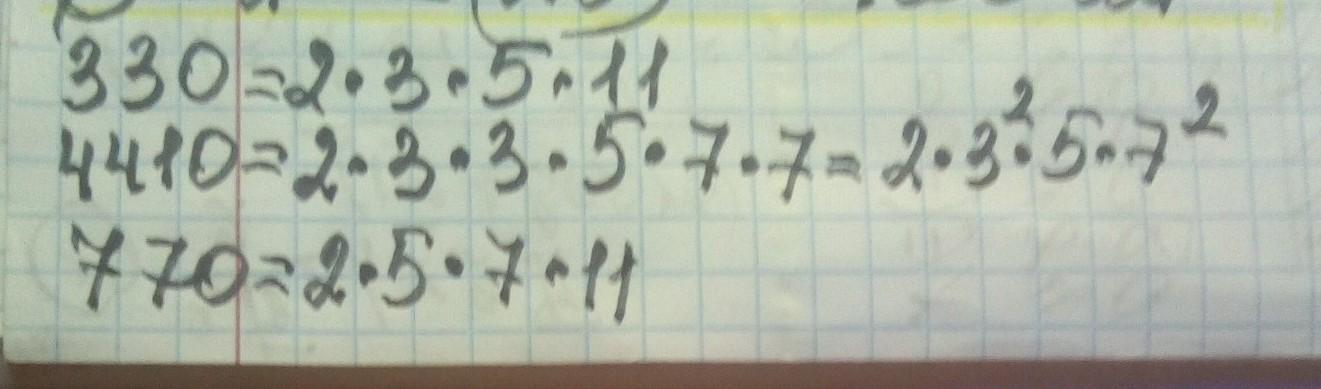 330=2·3·5·11
4410=2·3·3·5·7·7=2·3²·5·7²
770=2·5·7·11